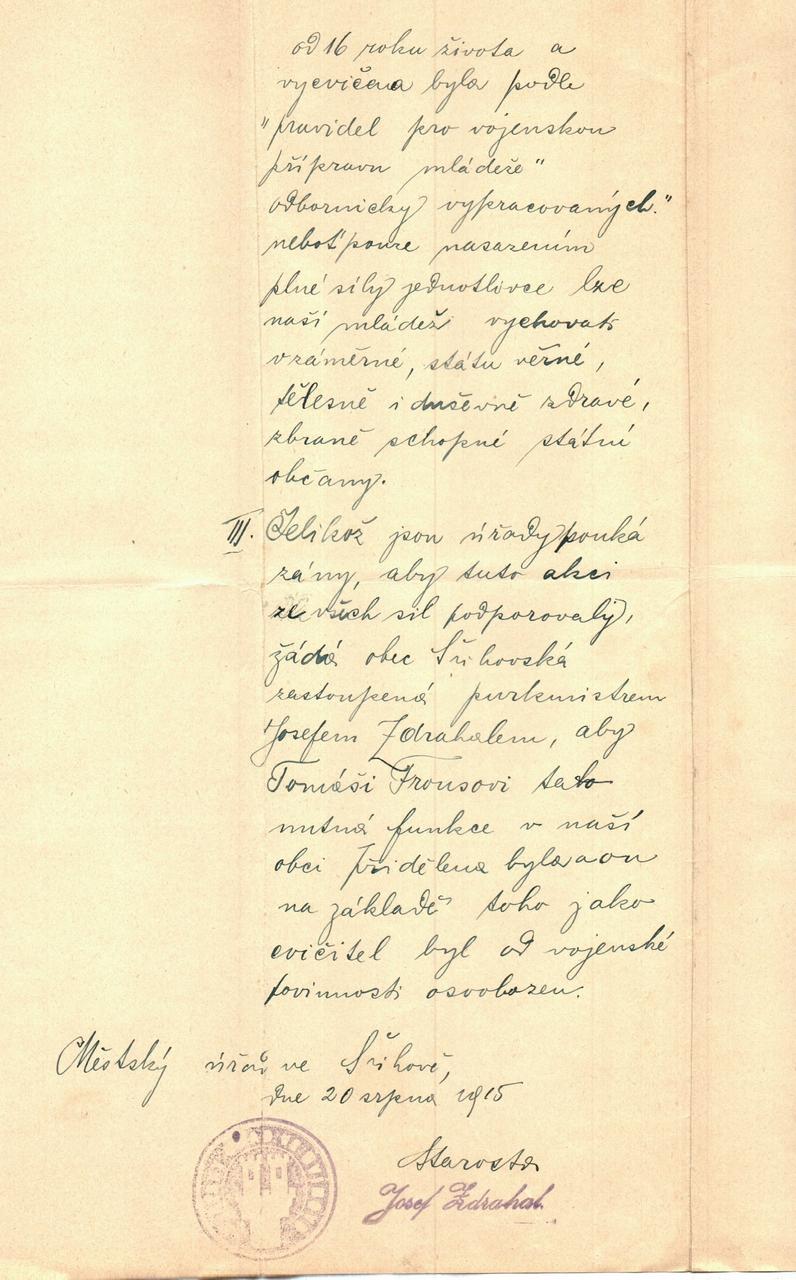 od 16 roku života a
vycvičena byla podle
"pravidel pro vojenskou
přípravu mládeže"
odbornicky vypracovaných."
neboť pouze nasazením
plné síly jednotlivce lze
naší mládež vychovati
v záměrné, státu věrné,
tělesně i duševně zdravé,
zbraně schopné státní
občany.
III. Jelikož jsou úřady pouká
zány, aby tuto akci
ze všech sil podporovaly,
žádá obec Střihovská
zastoupená purkmistrem
Josefem Zdrahalem, aby
Tomáši Frousovi tato
nutná funkce v naší
obci přidělena byla a on
na základě toho jako
cvičitel byl od vojenské
povinnosti osvobozen.
Městský úřad ve
dne 20 srpna 1915
Starosta
Josef Zdrahal.